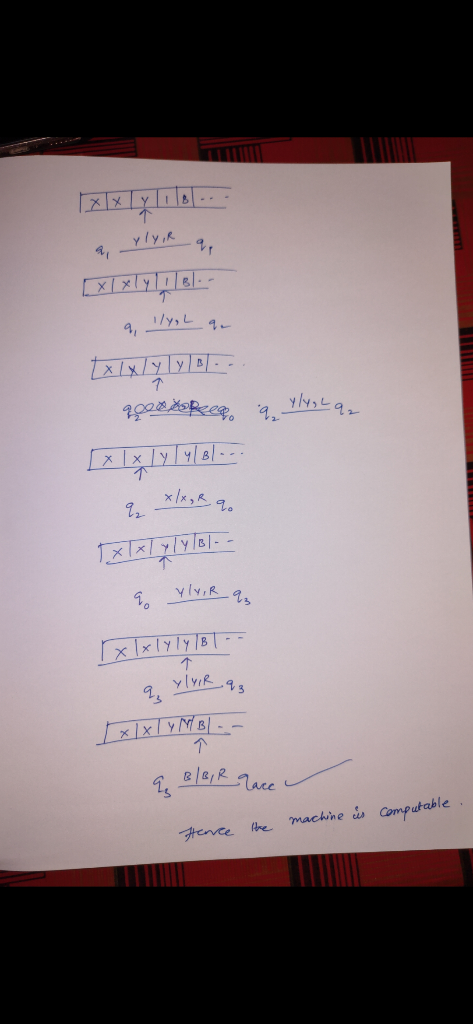 X | X | Y | 1 | B | ...
↑
q1 Y/Y,R q1
X | X | Y | 1 | B | ..
↑
q1 1/Y,L q2
X | X | Y | Y | B | ...
↑
q2 q0 q2 Y/Y,L q2
X | X | Y | Y | B | ...
↑
q2 X/X,R q0
X | X | Y | Y | B | ..
↑
q0 Y/Y,R q3
X | X | Y | Y | B | ..
↑
q3 Y/Y,R q3
X | X | Y | Y | B | ..
↑
q3 B/B,R qacc ✓
Hence the machine is computable.